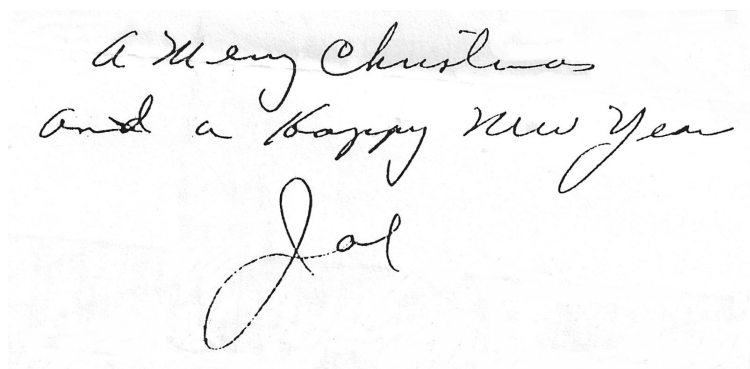 A Merry Christmas
and a Happy New Year
Joe